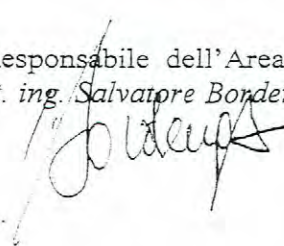 esponsabile dell'Area
t. ing. Salvatore Borde